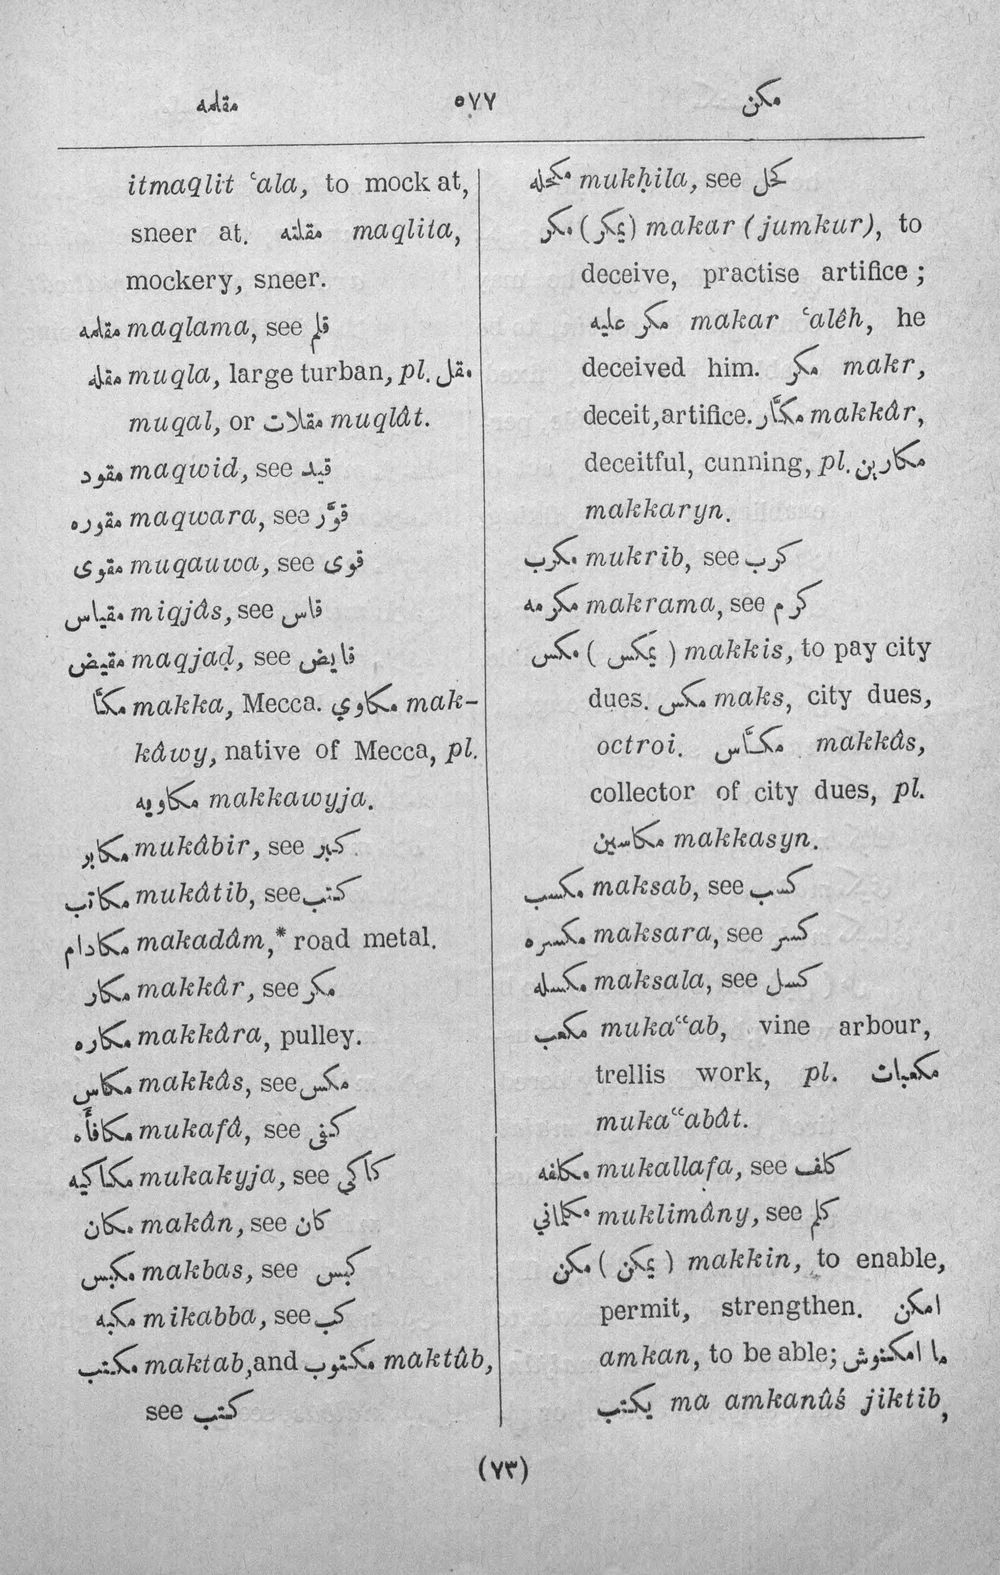 مقلمه ٥٧٧ مكن
itmaqlit ʿala, to mock at,
sneer at. مقلته maqlita,
mockery, sneer.
مقلمه maqlama, see قلم
مقله muqla, large turban, pl. مقل
muqal, or مقلات muqlât.
مقود maqwid, see قيد
مقوره maqwara, see قوَّر
مقوى muqauwa, see قوى
مقياس miqjâs, see قاس
مقيض maqjaḍ, see قايض
مكَّا makka, Mecca. مكاوي mak-
kâwy, native of Mecca, pl.
مكاويه makkawyja.
مكابر mukâbir, see كبر
مكاتب mukâtib, see كتب
مكادام makadâm,* road metal.
مكار makkâr, see مكر
مكاره makkâra, pulley.
مكاس makkâs, see مكس
مكافأه mukafâ, see كفى
مكاكيه mukakyja, see كاكى
مكان makân, see كان
مكبس makbas, see كبس
مكبه mikabba, see كب
مكتب maktab, and مكتوب maktûb,
see كتب
مكحله mukḥila, see كحل
مكر (يمكر) makar (jumkur), to
deceive, practise artifice;
مكر عليه makar ʿalêh, he
deceived him. مكر makr,
deceit, artifice. مكَّار makkâr,
deceitful, cunning, pl. مكارين
makkaryn.
مكرب mukrib, see كرب
مكرمه makrama, see كرم
مكس (يمكس) makkis, to pay city
dues. مكس maks, city dues,
octroi. مكَّاس makkâs,
collector of city dues, pl.
مكاسين makkasyn.
مكسب maksab, see كسب
مكسره maksara, see كسر
مكسله maksala, see كسل
مكعب mukaʿʿab, vine arbour,
trellis work, pl. مكعبات
mukaʿʿabât.
مكلفه mukallafa, see كلف
مكلماني muklimâny, see كلم
مكن (يمكن) makkin, to enable,
permit, strengthen. امكن
amkan, to be able; ما امكنوش
يكتب ma amkanûś jiktib,
(٧٣)